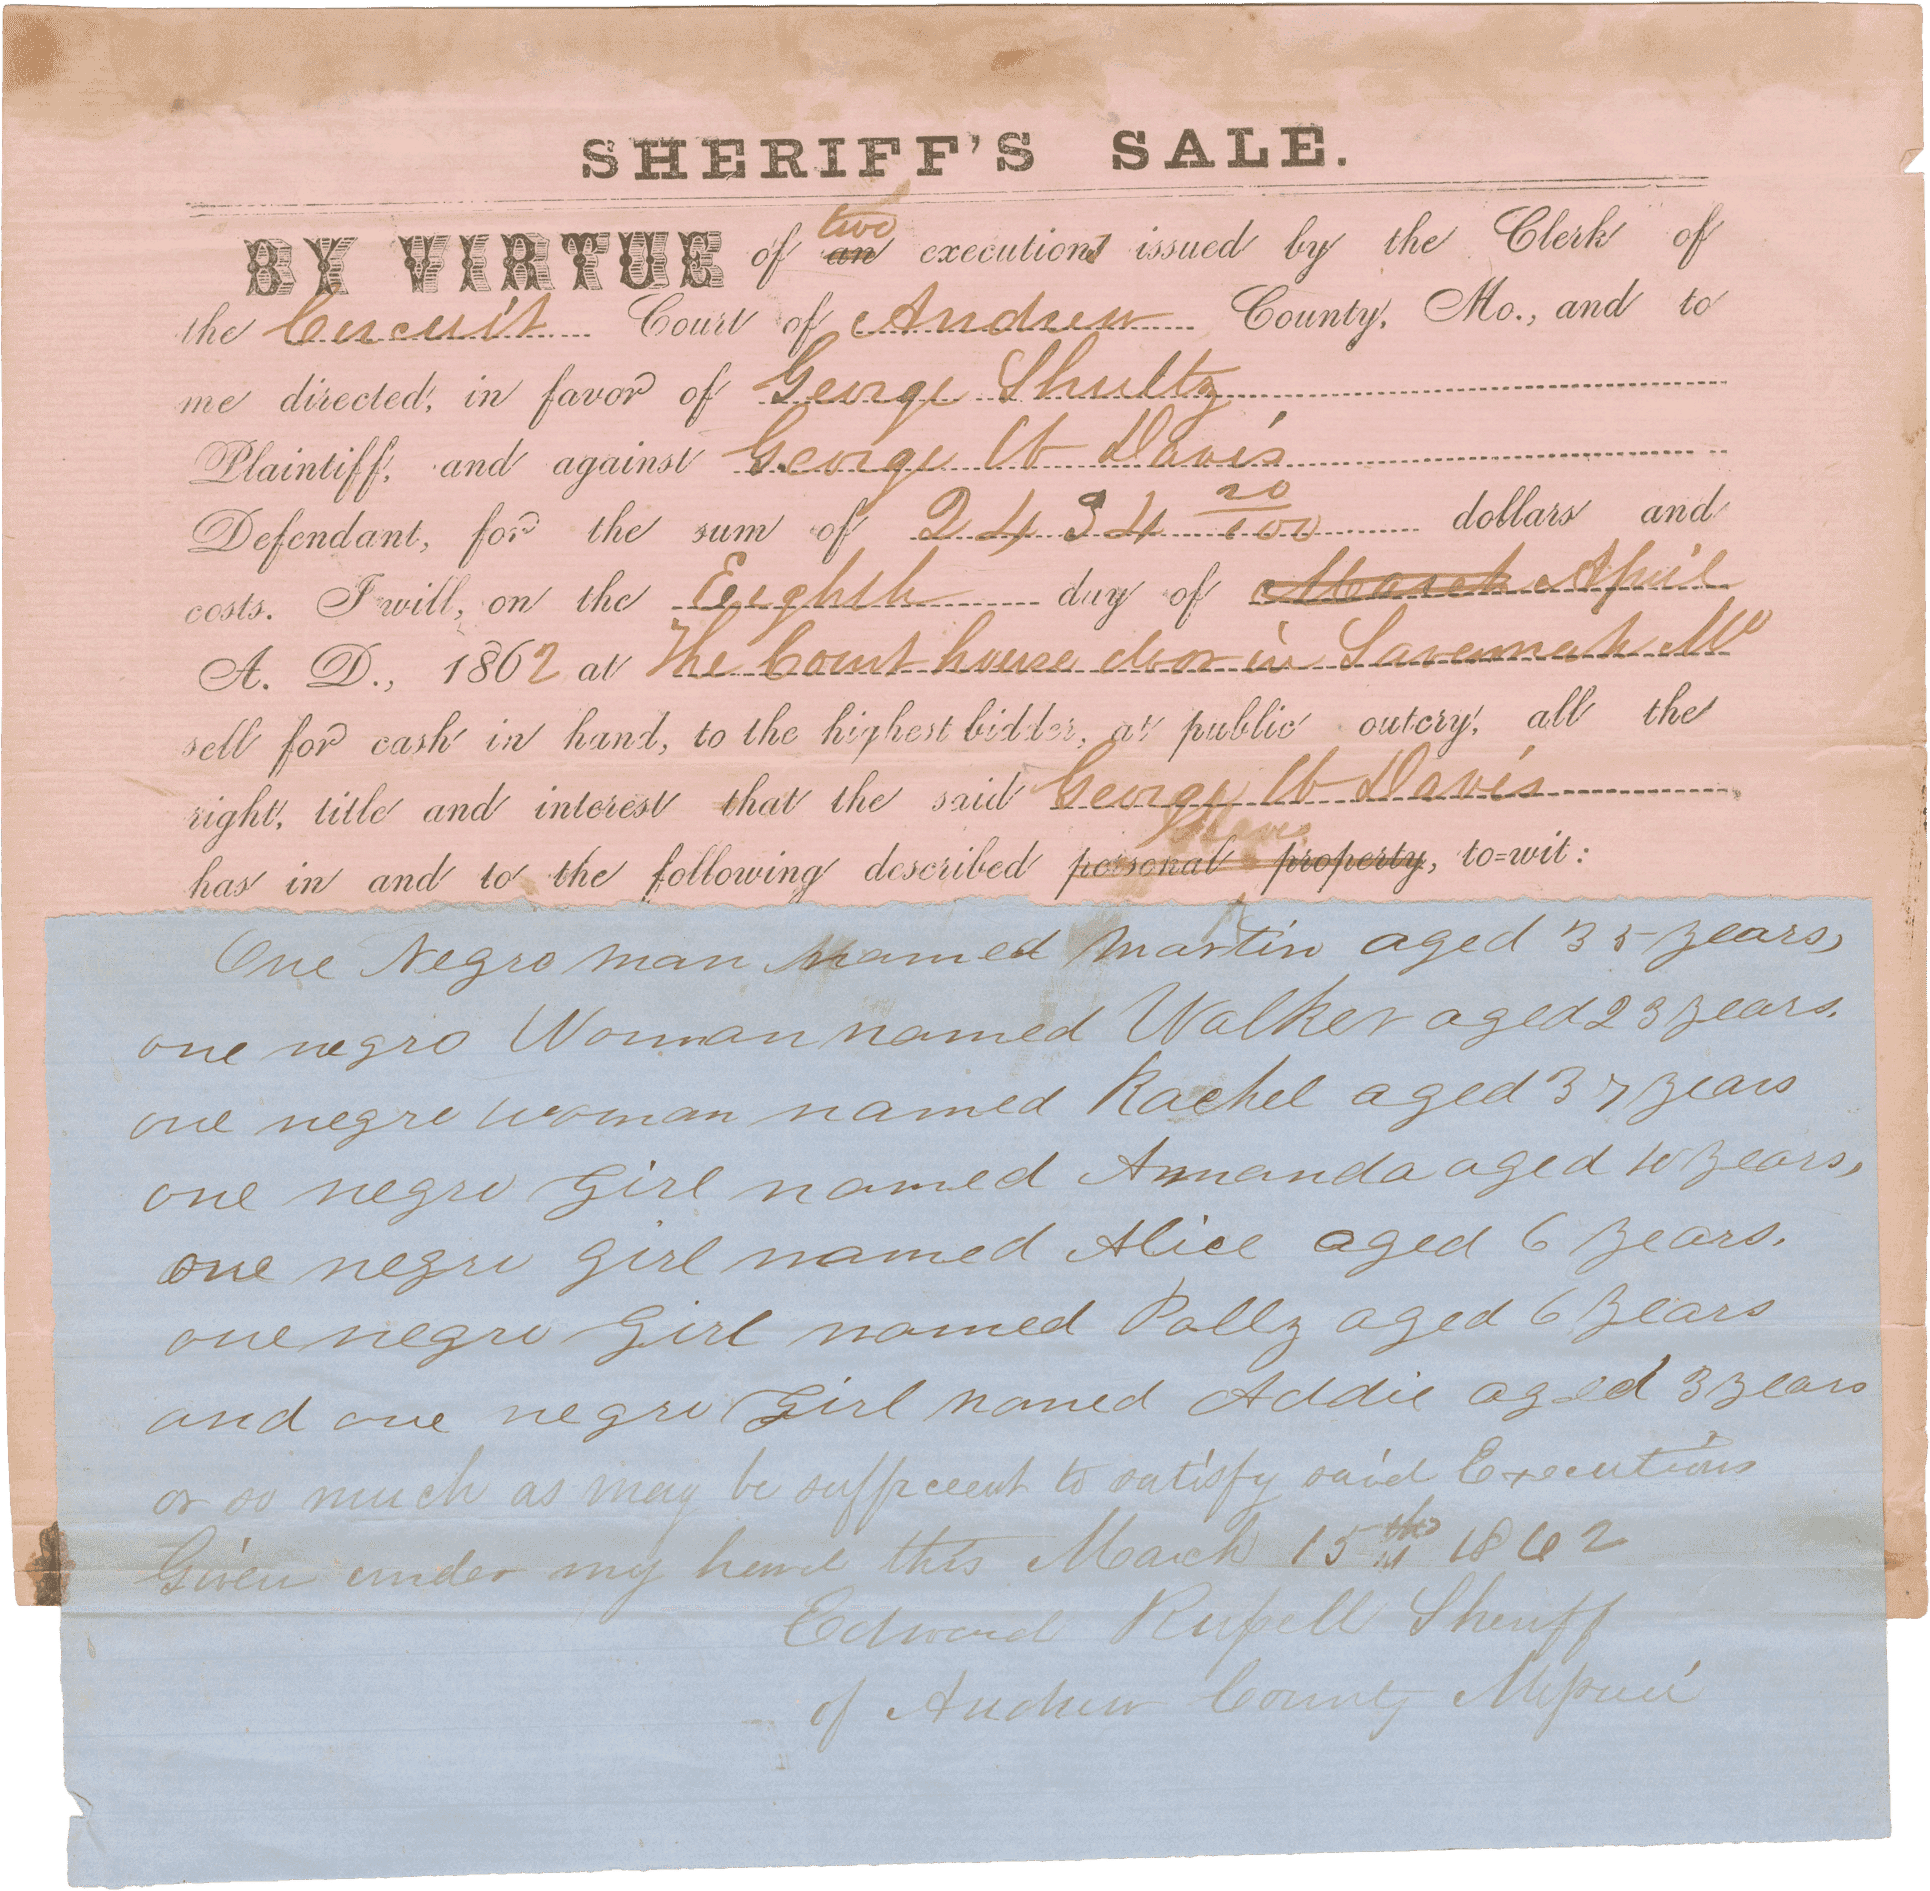 SHERIFF'S SALE.
two
BY VIRTUE of an executions issued by the Clerk of
the Circuit Court of Andrew County, Mo., and to
me directed, in favor of George Shultz
Plaintiff, and against George W Davis
Defendant, for the sum of 2434 20/100 dollars and
costs. I will, on the Eighth day of March April
A. D., 1862 at the Court house door in Savannah Mo
sell for cash in hand, to the highest bidder, at public outcry, all the
right, title and interest that the said George W Davis
Slaves
has in and to the following described personal property, to=wit:
One Negro man Named Martin aged 35 years,
one negro Woman named Walker aged 23 years.
one negro woman named Rachel aged 37 years
one negro Girl named Amanda aged 10 years,
one negro girl named Alice aged 6 years.
one negro Girl named Polly aged 6 years
and one negro Girl named Addie aged 3 years
or so much as may be sufficient to satisfy said Executions
Given under my hand this March 15th 1862
Edward Russell Sheriff
of Andrew County Missouri